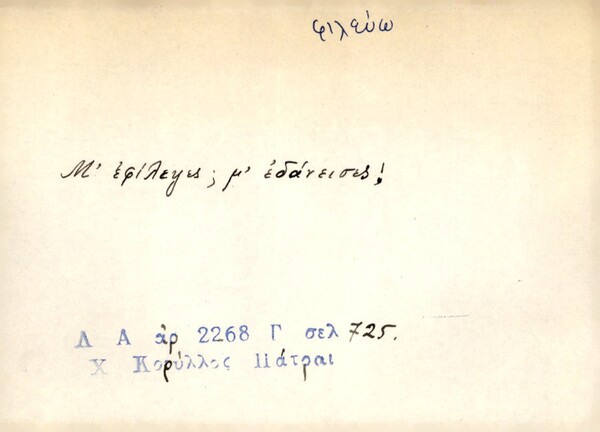 φιλεύω
Μ' ἐφίλεψες; μ' ἐδάνεισες!
Λ Α ἀρ 2268 Γ σελ 725.
Χ Κορύλλος Πάτραι